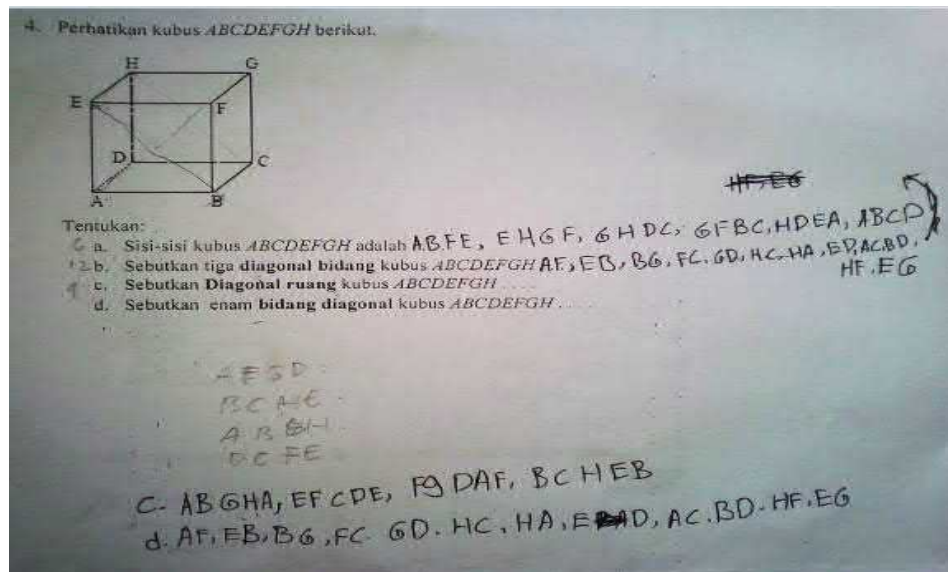 4. Perhatikan kubus ABCDEFGH berikut.
H G
E F
D C
A B
HF, EG
Tentukan:
6 a. Sisi-sisi kubus ABCDEFGH adalah ABFE, EHGF, GHDC, GFBC, HDEA, ABCD
12 b. Sebutkan tiga diagonal bidang kubus ABCDEFGH AF, EB, BG, FC, GD, HC, HA, ED, AC, BD,
HF, EG
c. Sebutkan Diagonal ruang kubus ABCDEFGH ....
d. Sebutkan enam bidang diagonal kubus ABCDEFGH ....
BCHE
ABGH
DCFE
C. ABGHA, EFCDE, FG DAF, BCHEB
d. AF, EB, BG, FC. GD. HC, HA, ED, AC. BD. HF. EG